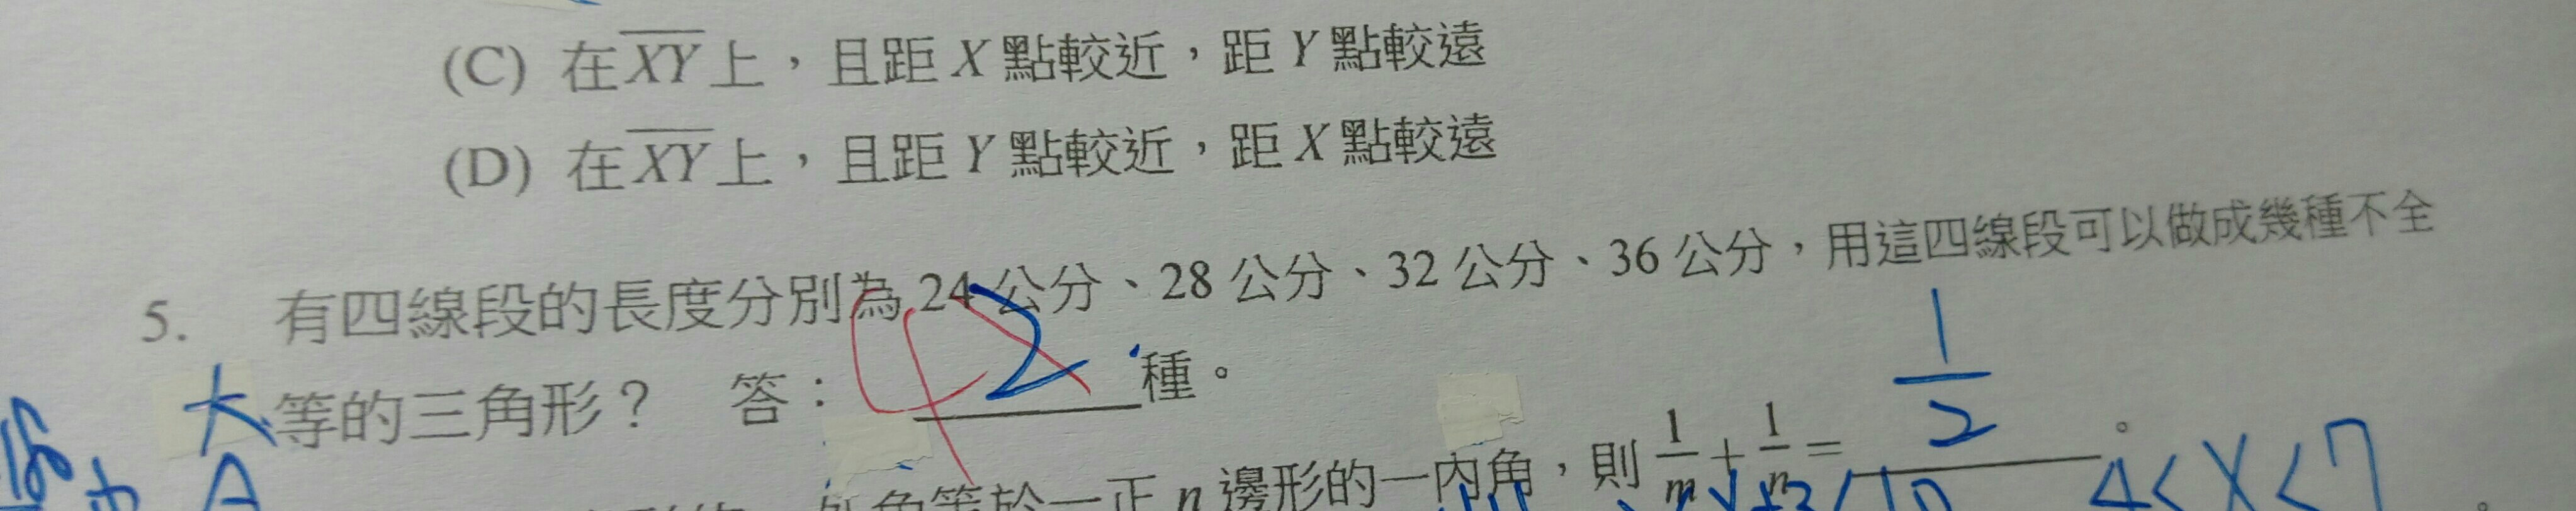 (C) 在XY上，且距 X 點較近，距 Y 點較遠
(D) 在XY上，且距 Y 點較近，距 X 點較遠
5. 有四線段的長度分別為 24 公分、28 公分、32 公分、36 公分，用這四線段可以做成幾種不全
等的三角形？ 答：2 種。
角等於一正 n 邊形的一內角，則 1/m + 1/n = 1/2 。
4<X<7